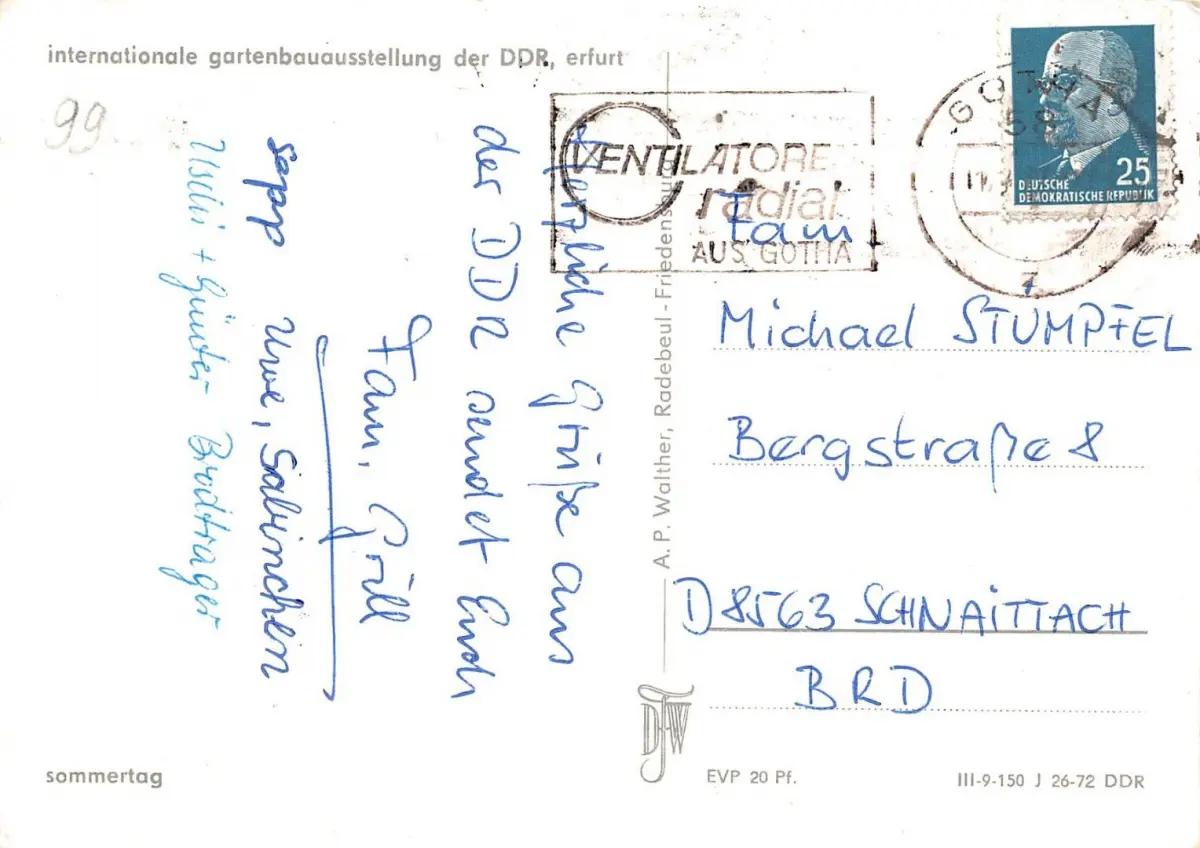 internationale gartenbauausstellung der DDR, erfurt
99
Herzliche Grüße aus
der DDR sendet Euch
Fam. Grill
sepp Uwe, Sabinchen
Uschi + Günter Brodtrager
VENTILATOREN
radial
AUS GOTHA
GOTHA
58
7
25
DEUTSCHE
DEMOKRATISCHE REPUBLIK
Fam
Michael STUMPFEL
Bergstraße 8
D 8563 SCHNAITTACH
BRD
A. P. Walther, Radebeul-Friedensburg
sommertag
EVP 20 Pf.
III-9-150 J 26-72 DDR